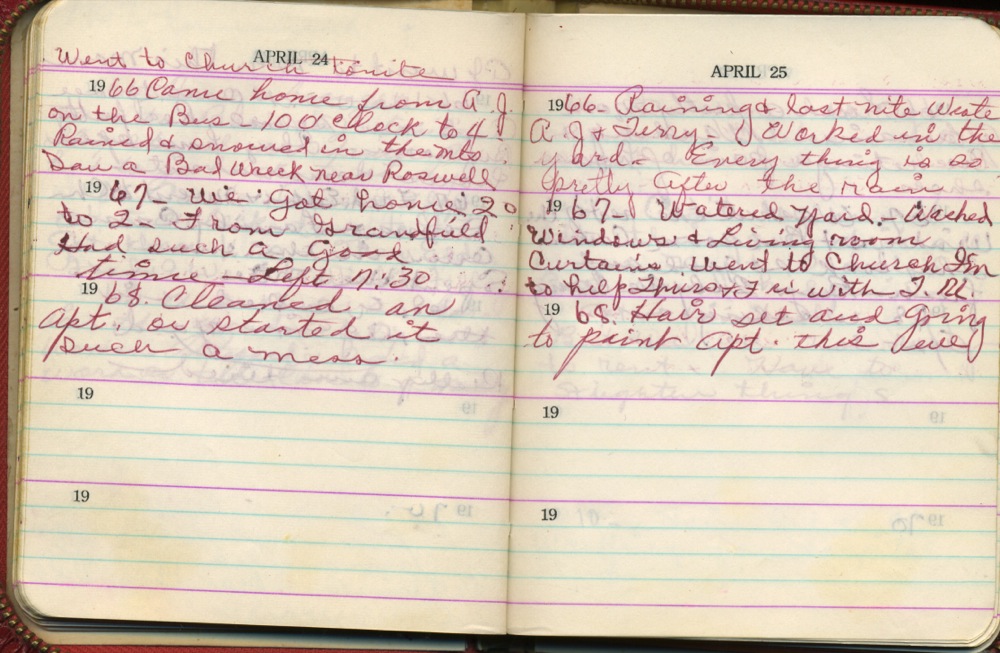 APRIL 24
Went to Church tonite
1966 Came home from A. J.
on the Bus - 10 O'Clock to 4
Rained & snowed in the mts
Saw a Bad Wreck near Roswell
1967 - We Got home 20
to 2 - From Grandfield
Had such a Good
time - Left 7:30
1968. Cleaned an
apt. or started it
such a mess.
19
19
APRIL 25
1966 - Raining & last nite Wrote
A. J & Terry - Worked in the
yard - Every thing is so
pretty after the rain
1967 - Watered yard - Washed
Windows & Living room
Curtains Went to Church
to help with
1968 Hair set and going
to paint apt. this eve
19
19